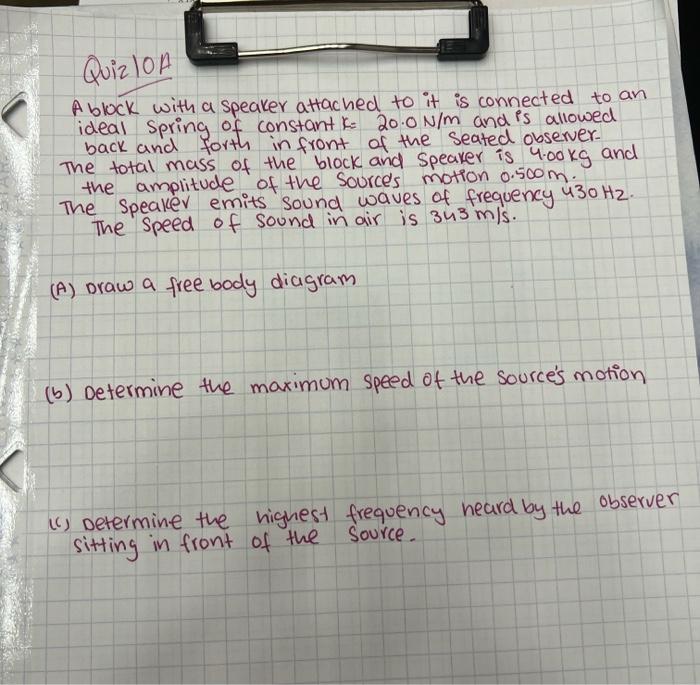 Quiz 10A
A block with a speaker attached to it is connected to an
ideal spring of constant k= 20.0 N/m and is allowed
back and forth in front of the seated observer.
The total mass of the block and speaker is 4.00kg and
the amplitude of the source's motion 0.500m.
The speaker emits sound waves of frequency 430 Hz.
The speed of sound in air is 343 m/s.
(A) Draw a free body diagram
(b) Determine the maximum speed of the source's motion
(c) Determine the highest frequency heard by the observer
sitting in front of the source.